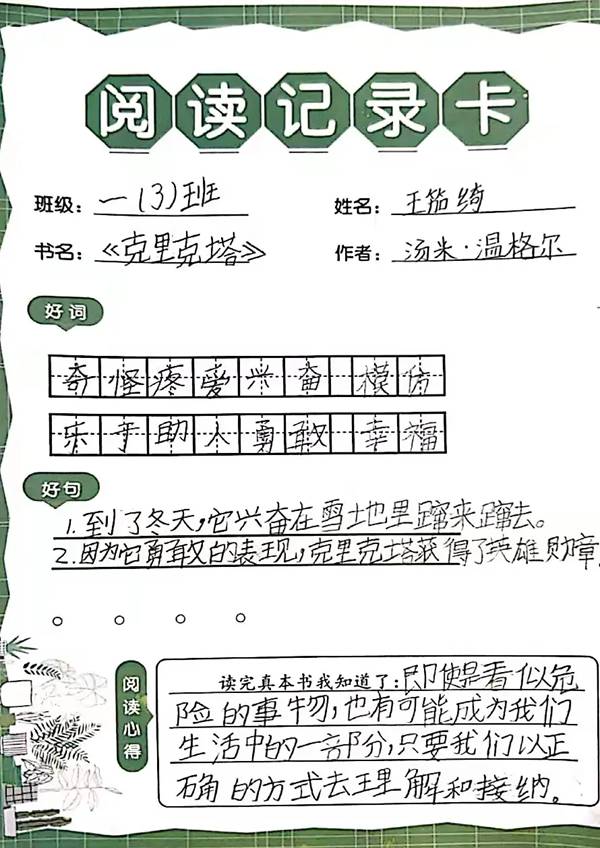 阅读记录卡
班级：一（3）班 姓名：王笳绮
书名：《克里克塔》 作者：汤米·温格尔
好词
奇怪疼爱兴奋 模仿
乐于助人勇敢 幸福
好句
1.到了冬天，它兴奋在雪地里蹿来蹿去。
2.因为它勇敢的表现，克里克塔获得了英雄勋章
阅读心得
读完真本书我知道了：即使是看似危
险的事物，也有可能成为我们
生活中的一部分，只要我们以正
确的方式去理解和接纳。